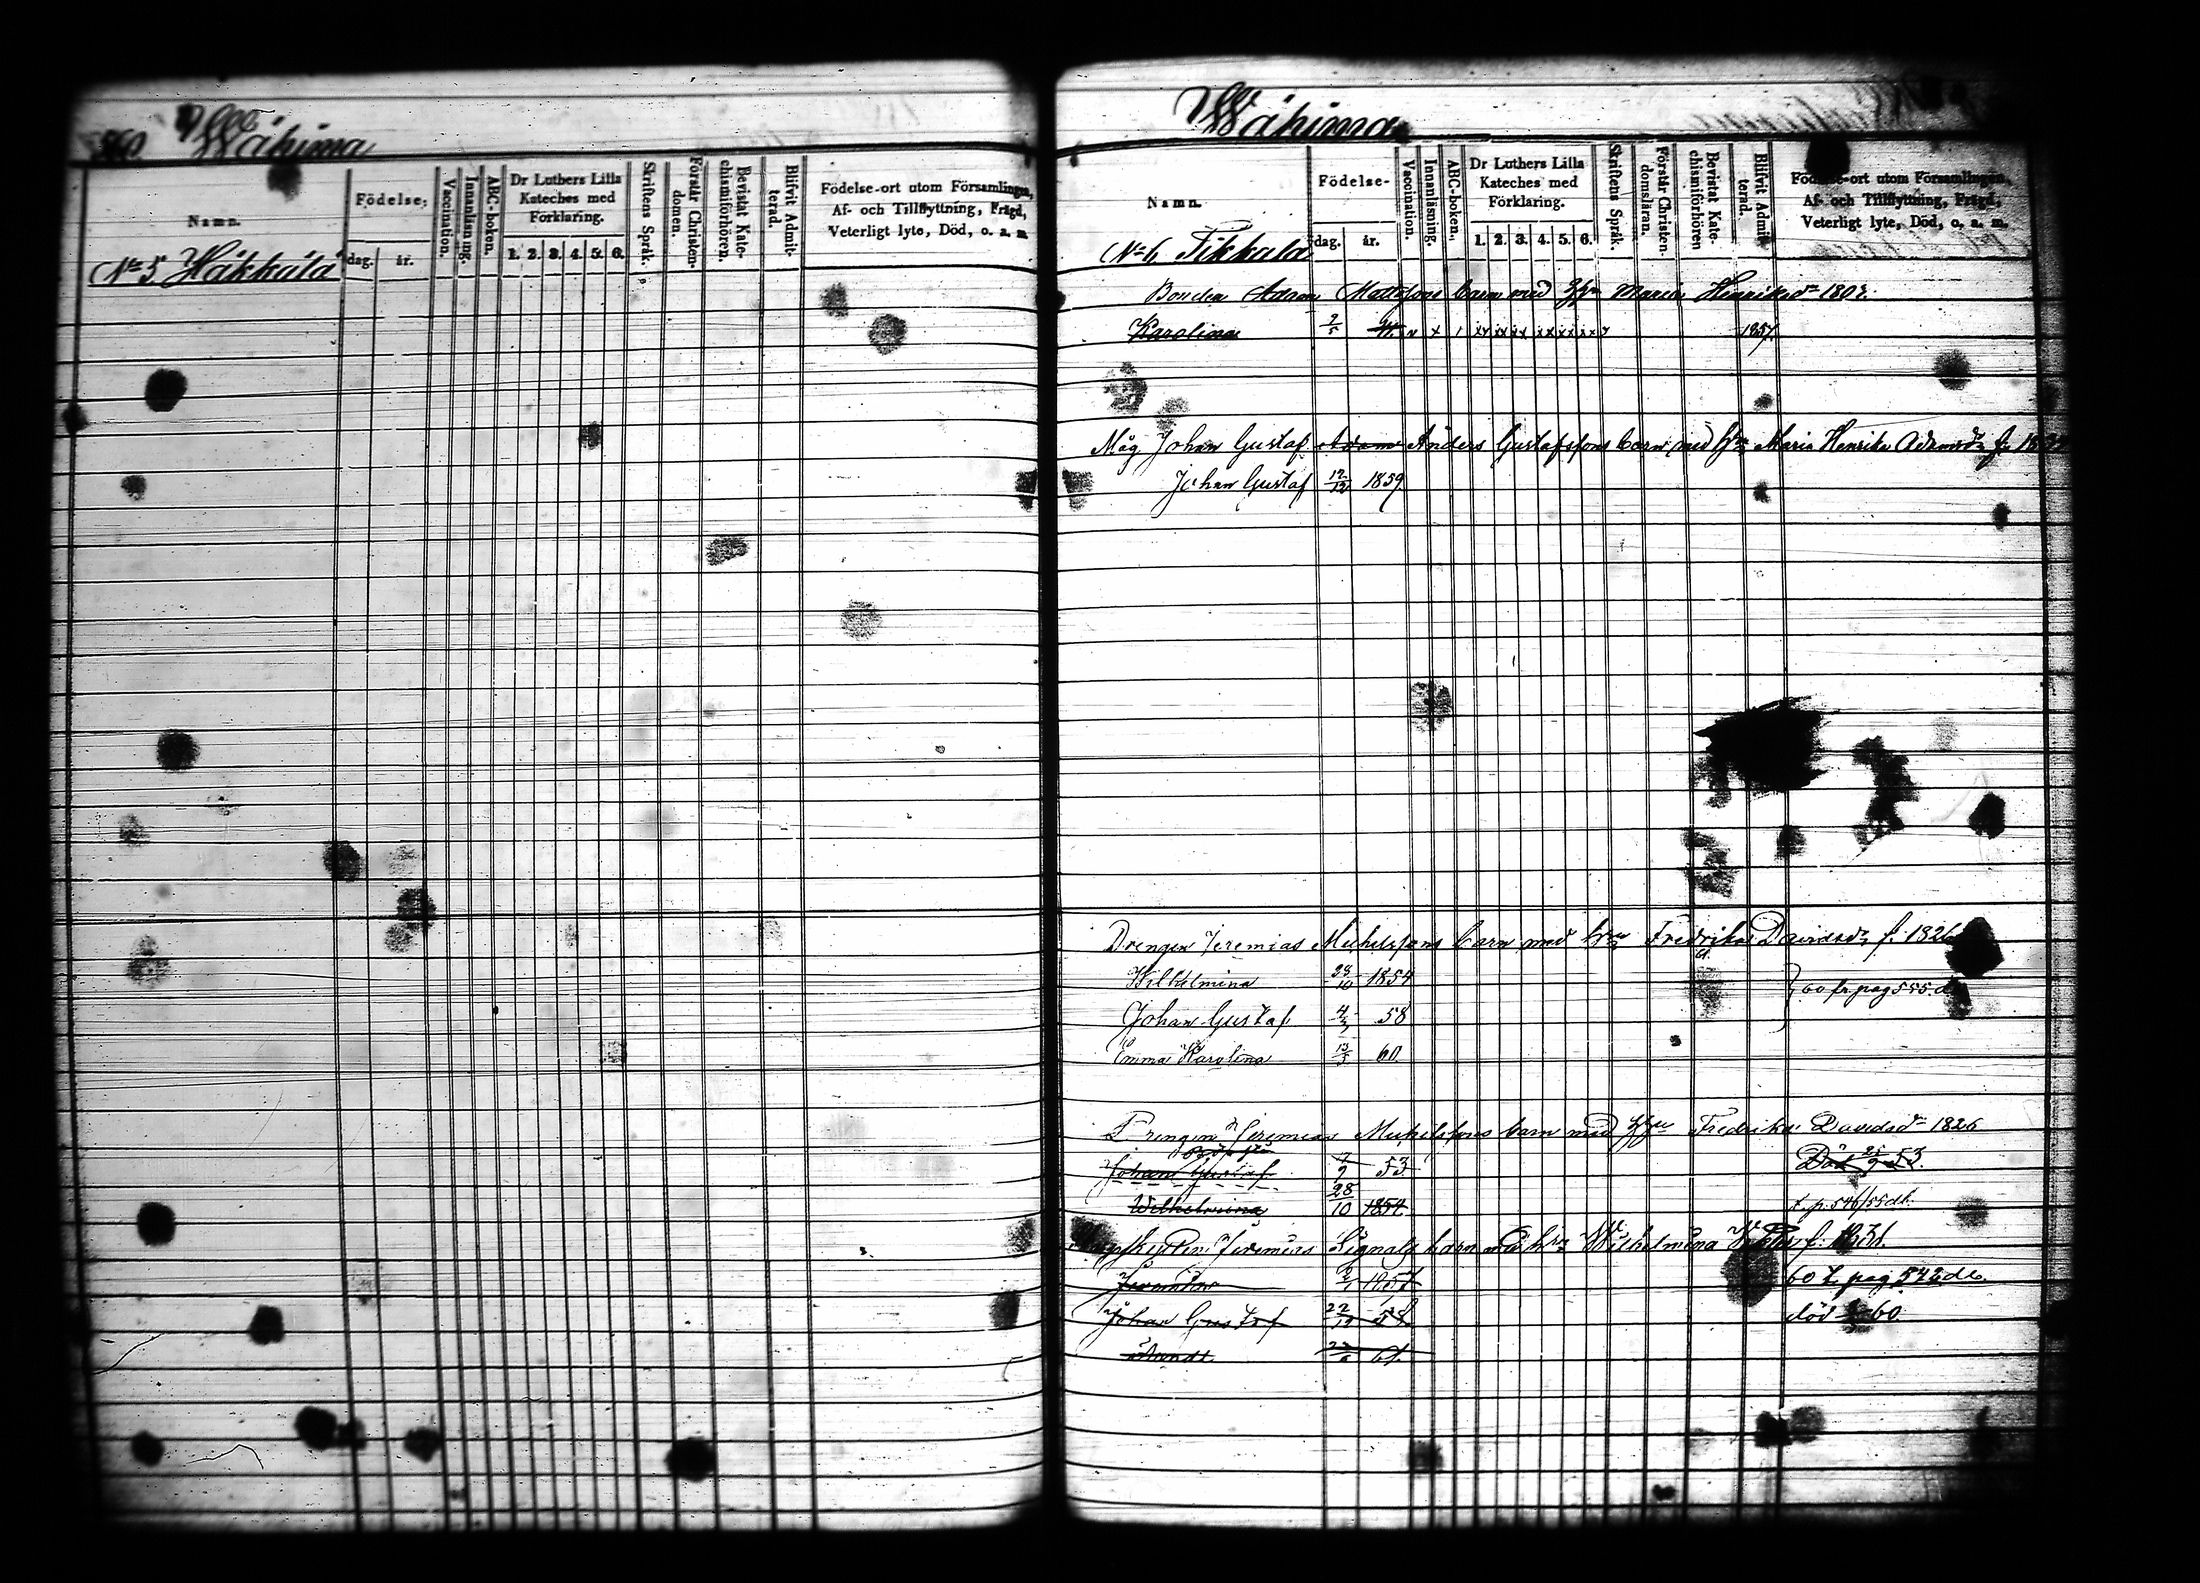 560 Wåhima
Namn. Födelse- dag. år. Vaccination. Innanläsning. ABC-boken. Dr Luthers Lilla Kateches med Förklaring. 1. 2. 3. 4. 5. 6. Skriftens Språk. Förstår Christendomen. Bevistat Katechismiförhören. Blifvit Admitterad. Födelse-ort utom Församlingen, Af- och Tillflyttning, Frägd, Veterligt lyte, Död, o. a. m.
No 5 Håkkala
Wåhima
Namn. Födelse- dag. år. Vaccination. Innanläsning. ABC-boken. Dr Luthers Lilla Kateches med Förklaring. 1. 2. 3. 4. 5. 6. Skriftens Språk. Förstår Christendomsläran. Bevistat Katechismiförhören Blifvit Admitterad. Födelse-ort utom Församlingen, Af- och Tillflyttning, Frägd, Veterligt lyte, Död, o. a. m.
No 6 Tikkala
Bonden Adam Mattsons barn med Hu Maria Henriksdr 1802.
Karolina 7/5 41. 1857.
Måg Johan Gustaf Adam Anders Gustafsfons barn med Hu Maria Henrika Adamsdr f.
Johan Gustaf 12/12 1859
Drengen Jeremias Michelsfons barn med Hu Fredrika Davidsdr f. 1826
Wilhelmina 28/10 1854 60 fr pag 555.
Johan Gustaf 58
Emma Karolina 13/5 60
Drengen Jeremias Michelsfons barn med Hu Fredrika Davidsdr 1826
Johan Gustaf 7/9 53. Död 25/9 53.
Wilhelmina 28/10 1854 t. p. 546/55 dh.
Jeremias Signals barn med Hu Wilhelmina f. 1831.
1857 60 t. pag 542 de.
Johan Gustaf 22/12 58 död 60.
22/6 61.